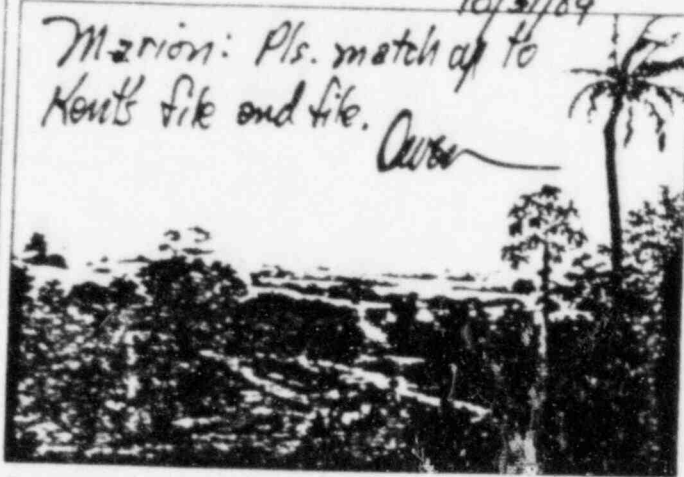 10/31/89
Marion: Pls. match up to
Kent's file and file.
Owen